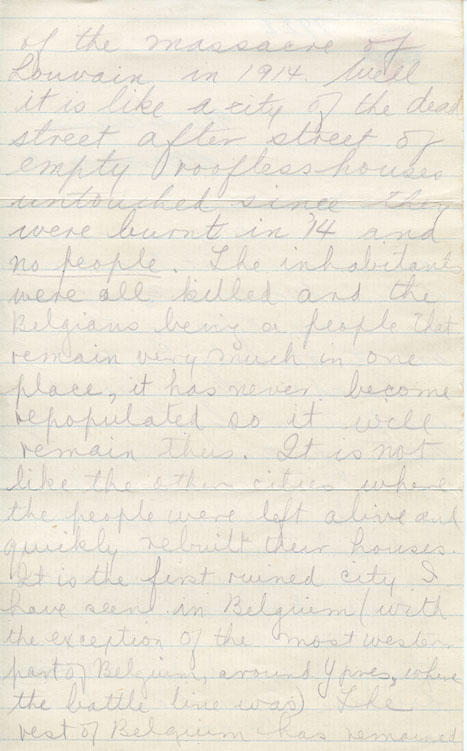 of the massacre of
Louvain in 1914. Well
it is like a city of the dead
street after street of
empty roofless houses
untouched since they
were burnt in '14 and
no people. The inhabitants
were all killed and the
Belgians being a people that
remain very much in one
place, it has never become
repopulated so it will
remain thus. It is not
like the other cities where
the people were left alive and
quickly rebuilt their houses.
It is the first ruined city I
have seen in Belgium (with
the exception of the most western
part of Belgium, around Ypres, where
the battle line was) The
rest of Belgium has remained